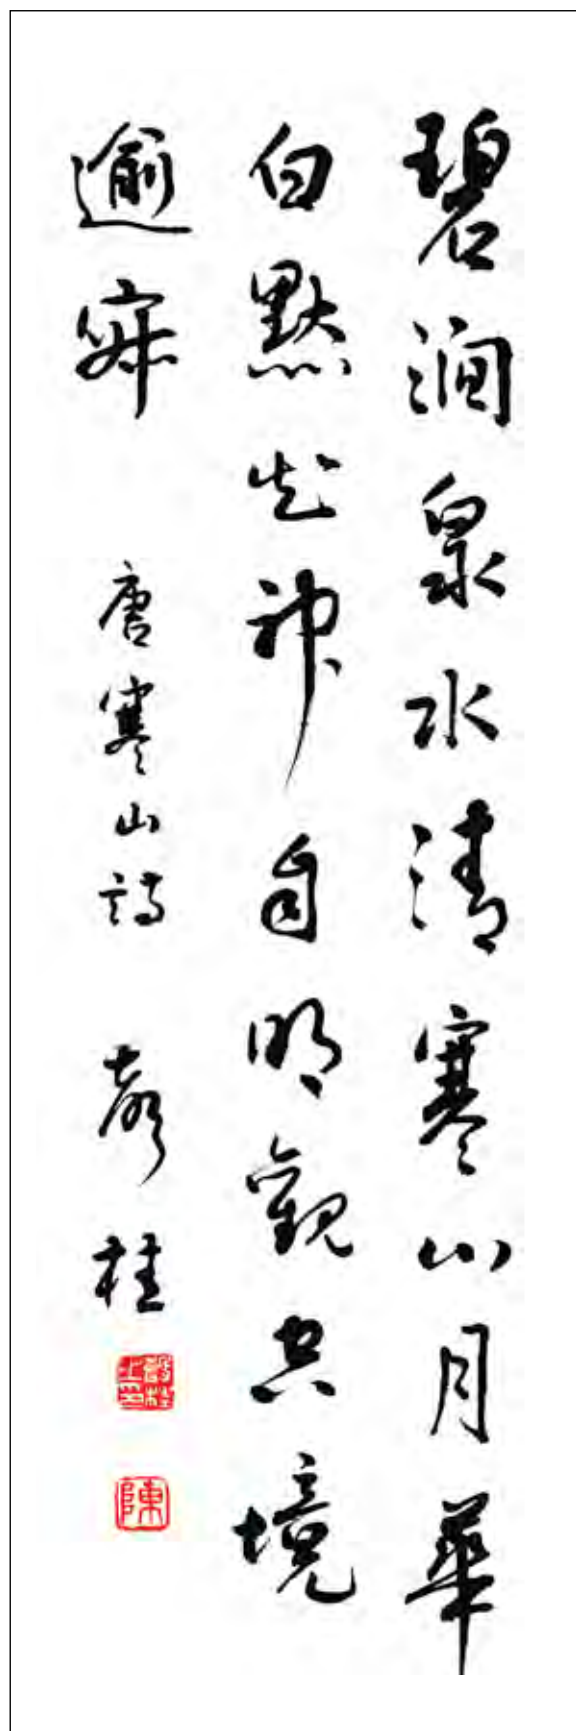 碧澗泉水清寒山月華
白默知神自明觀空境
逾寂 唐寒山詩 桂
陳